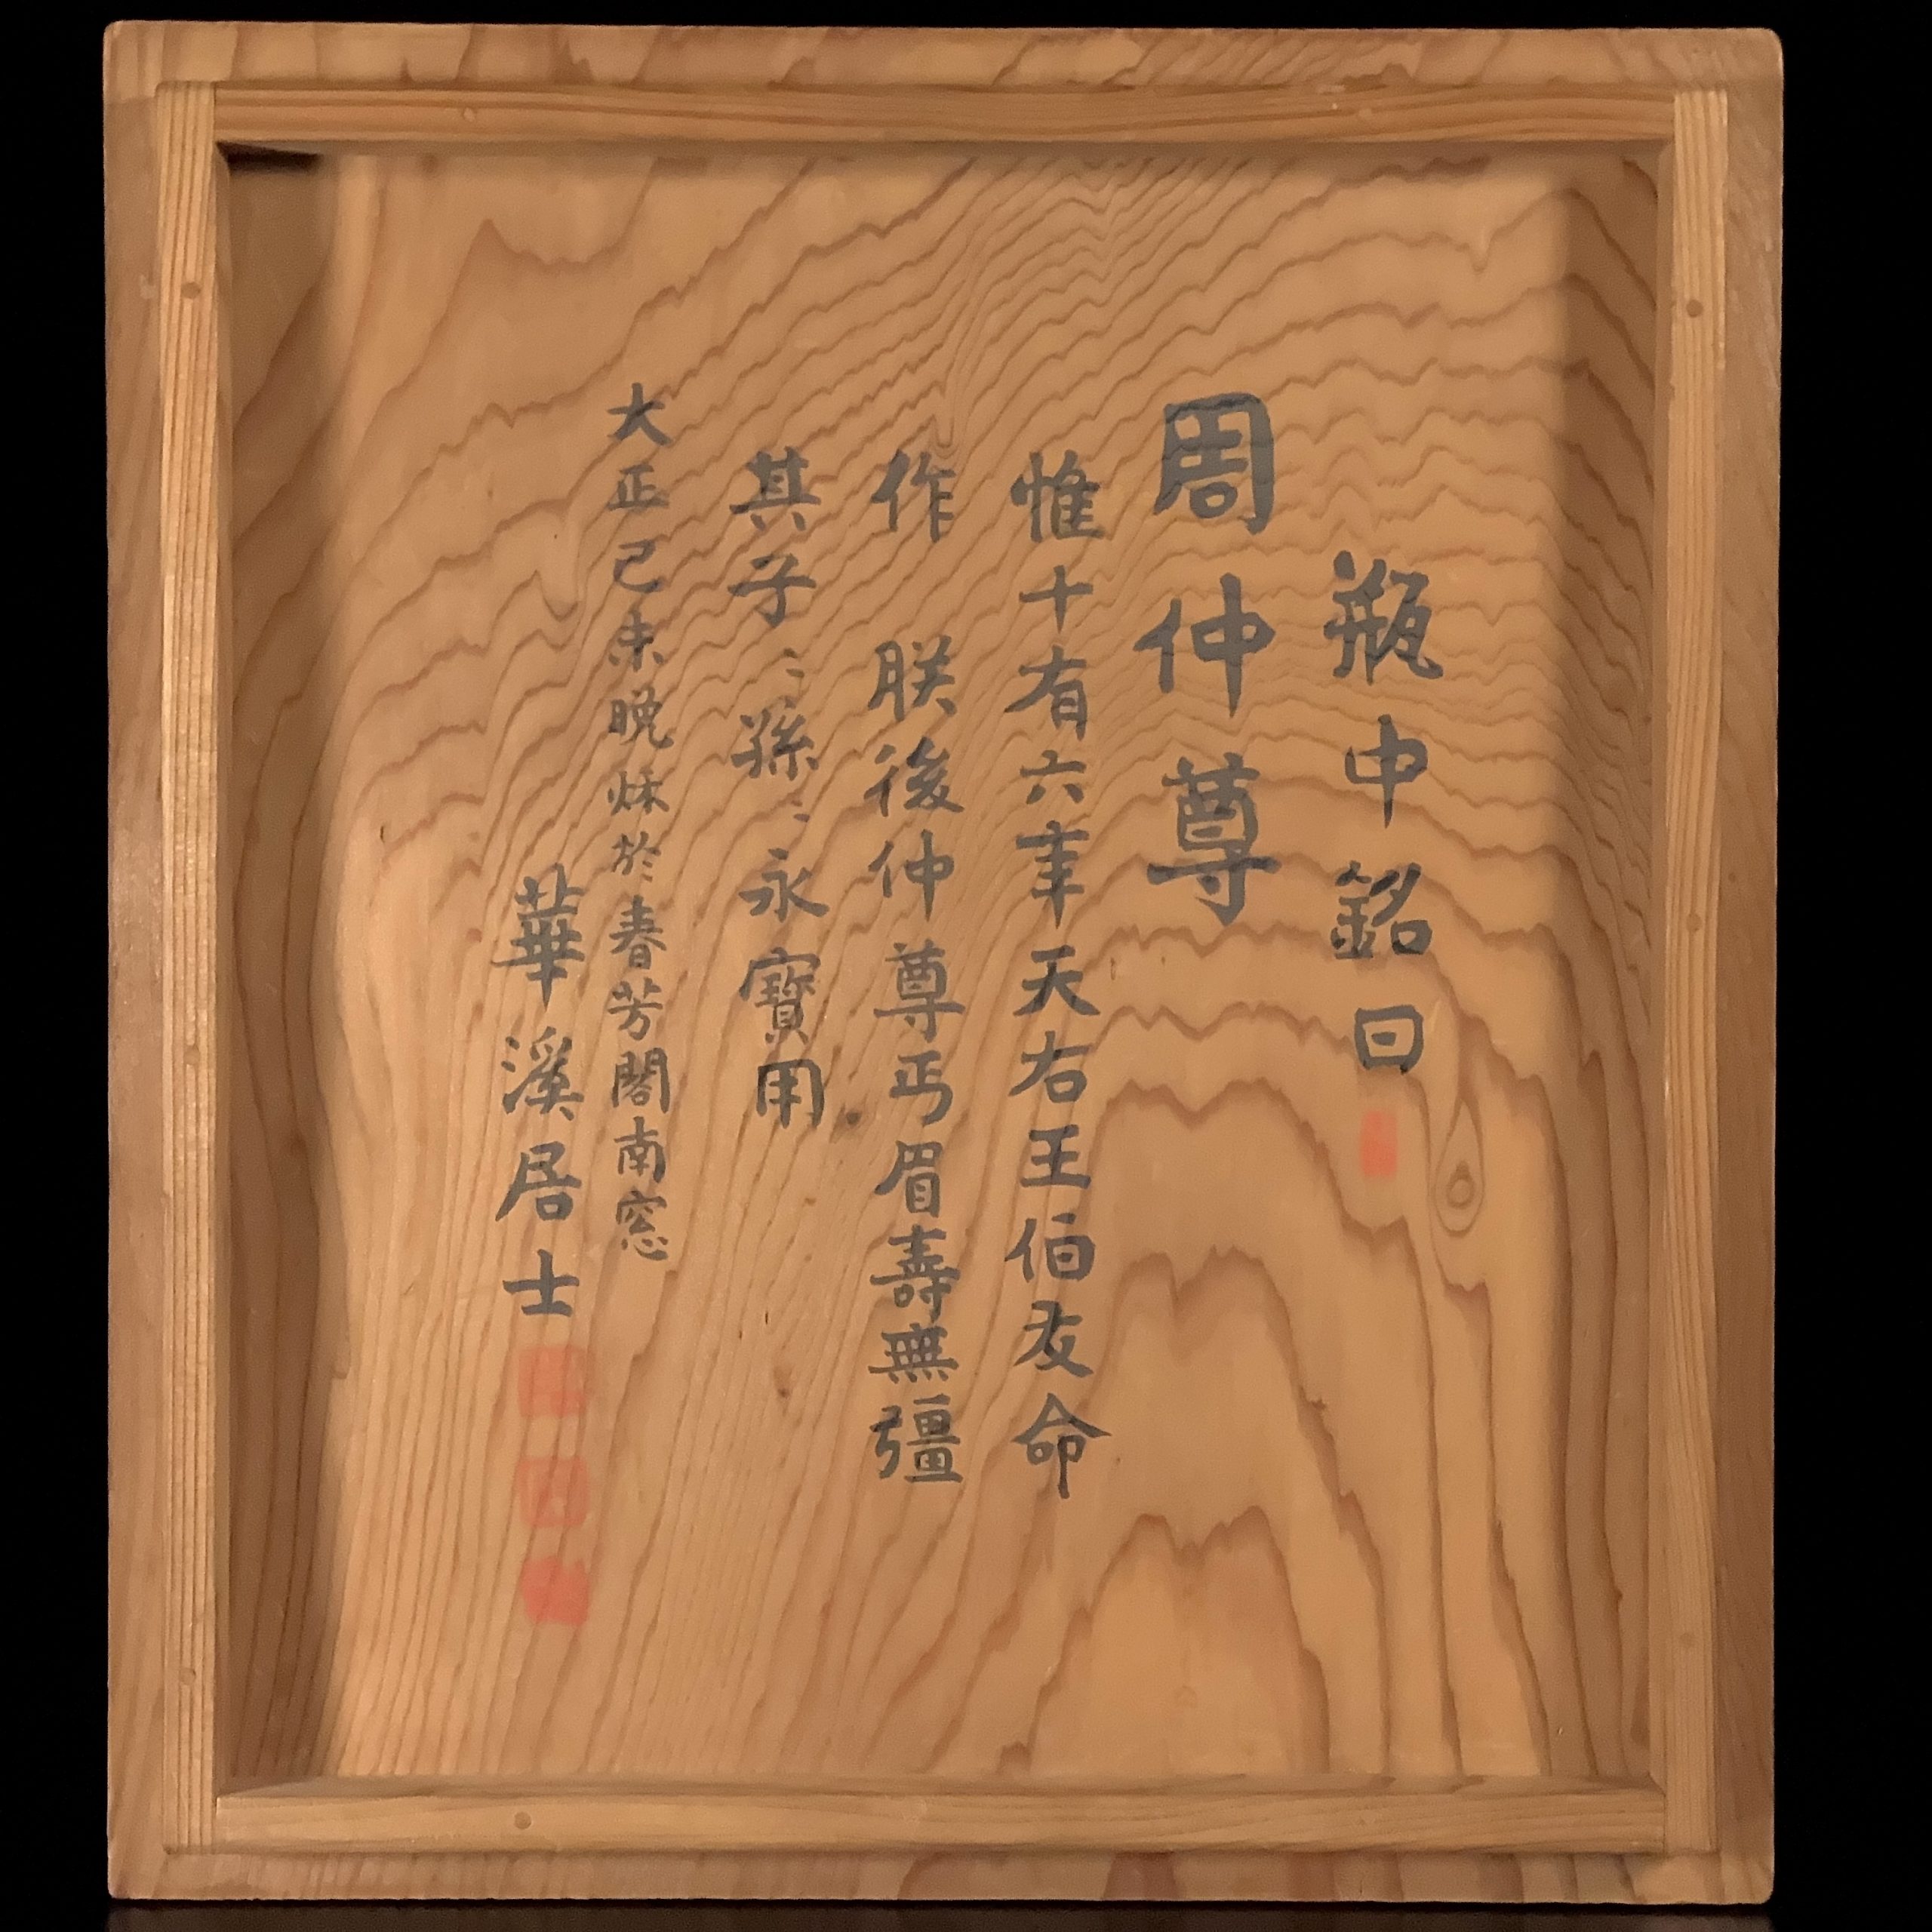 瓶中銘曰
周仲尊
惟十有六年天右王伯友命
作 朕後仲尊丐眉壽無彊
其子〻孫〻永寶用
大正己未晩秌於春芳閣南窓
華溪居士